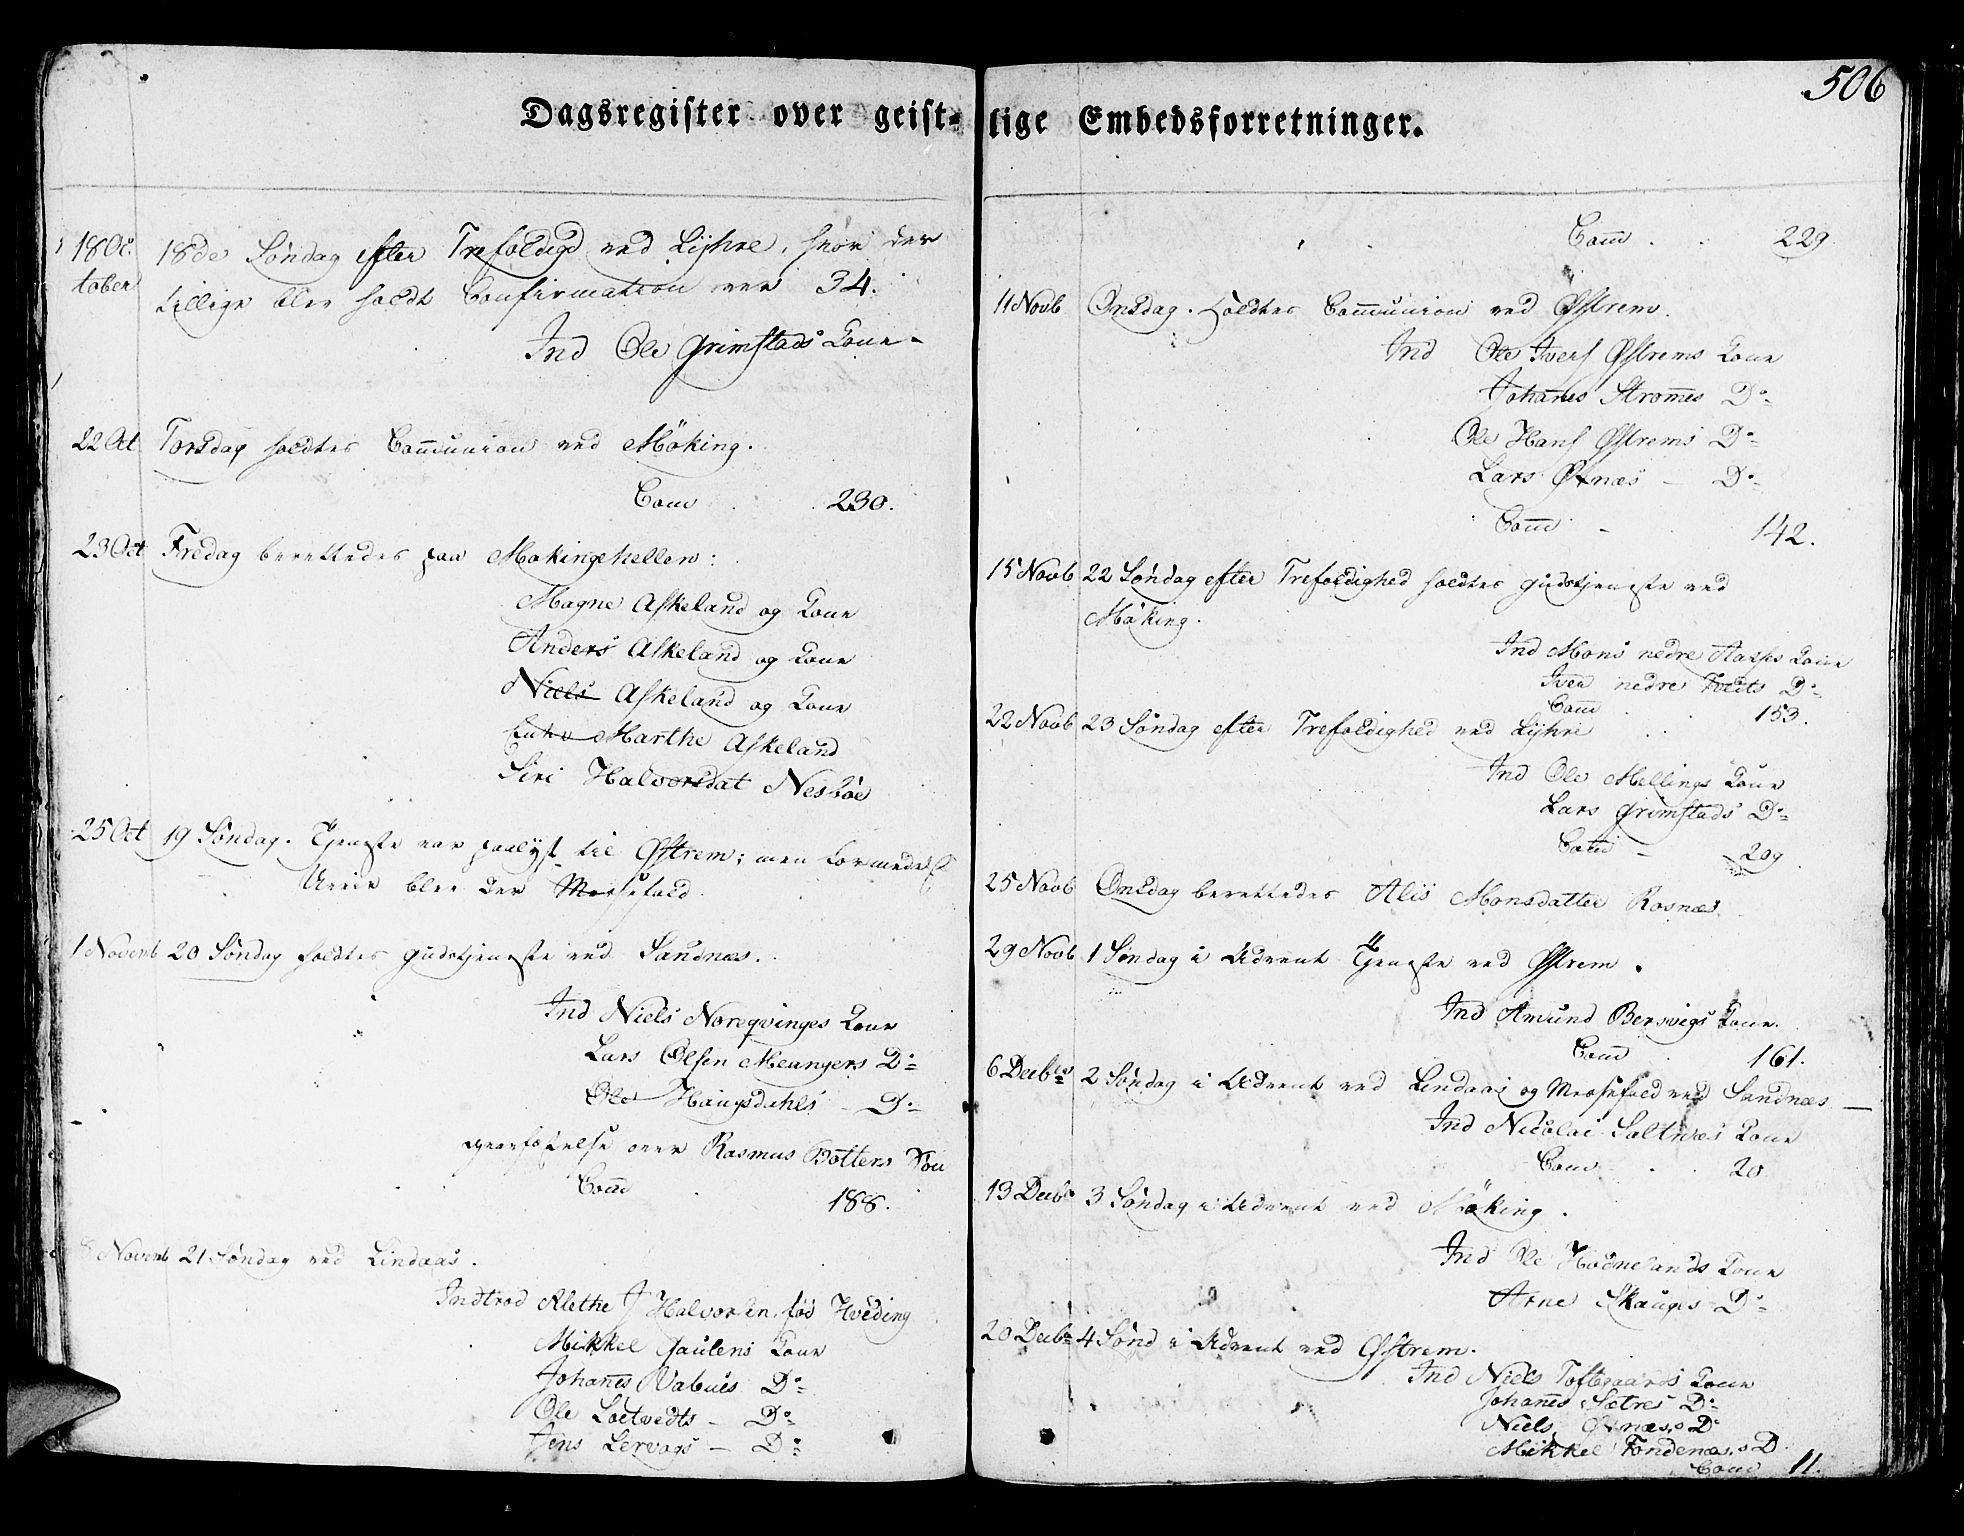 506
Dagsregister over geist-lige Embedsforretninger.
18 Oc: 18de Søndag efter Trefoldigd ved Lyhre, hvor der
tober tillige blev holdt Confirmation over 34.
Ind Ole Grimstads Kone -
22 Oct Torsdag holdtes Communion ved Møking.
Com 230.
23 Oct Fredag berettedes paa Mokingehellen:
Magne Askeland og Kone
Anders Askeland og Kone
Niels Askeland og Kone
Enke Marthe Askeland
Siri Halvorsdat Nesbøe
25 Oct 19 Søndag. Tjeneste var paalyst til Østrem; men formedelst
Uveir blev der Messefald
1 Novemb 20 Søndag holdtes Gudstjeneste ved Sandnæs.
Ind Niels Noreqvinges Kone
Lars Olsen Meangers Do
Ole Haugsdahls - Do
Rasmus Botters Søn
Com 188.
8 Novemb 21 Søndag ved Lindaas.
Indtrod Alethe J Halvorsen fød Hveding
Mikkel Gaulens Kone
Johanes Vabues Do
Ole Loetvedts - Do
Jens Lervogs - Do
Com 229
11 Novb Onsdag. Holdtes Communion ved Østrem.
Ind Ole Ivers Østrems Kone
Johanes Stromes Do
Ole Hans Østrems Do
Lars Øknæs - Do
Com - 142.
15 Novb 22 Søndag efter Trefoldighed holdtes Gudstjeneste ved
Møking.
Ind Mons nedre Kone
Iver nedre Tvedts Do
Com 153.
22 Novb 23 Søndag efter Trefoldighed ved Lyhre
Ind Ole Mellings Kone
Lars Grimstads Do
Com - 209
25 Novb Onsdag berettedes Alis Monsdatter Rosnæs
29 Novb 1 Søndag i Advent Tjeneste ved Østrem.
Ind Amund Bersvigs Kone.
Com 161.
6 Decbr 2 Søndag i Advent ved Lindaas og Messefald ved Sandnæs -
Ind Nicolai Saltnæs Kone
Com 20
13 Decbr 3 Søndag i Advent ved Møking.
Ind Ole Hodnelands Kone
Arne Skauges - Do
20 Decbr 4 Sønd i Advent ved Østrem.
Ind Niels Toftegaards Kone
Johanes Sætres Do
Niels Øknæs, Do
Mikkel Fondenæs, D
Com 11.